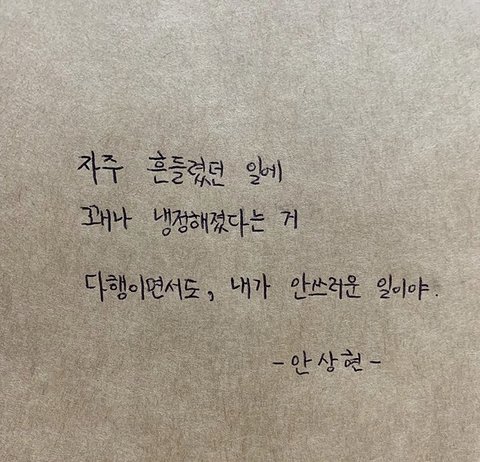 자주 흔들렸던 일에
꽤나 냉정해졌다는 거
다행이면서도, 내가 안쓰러운 일이야.
- 안상현 -